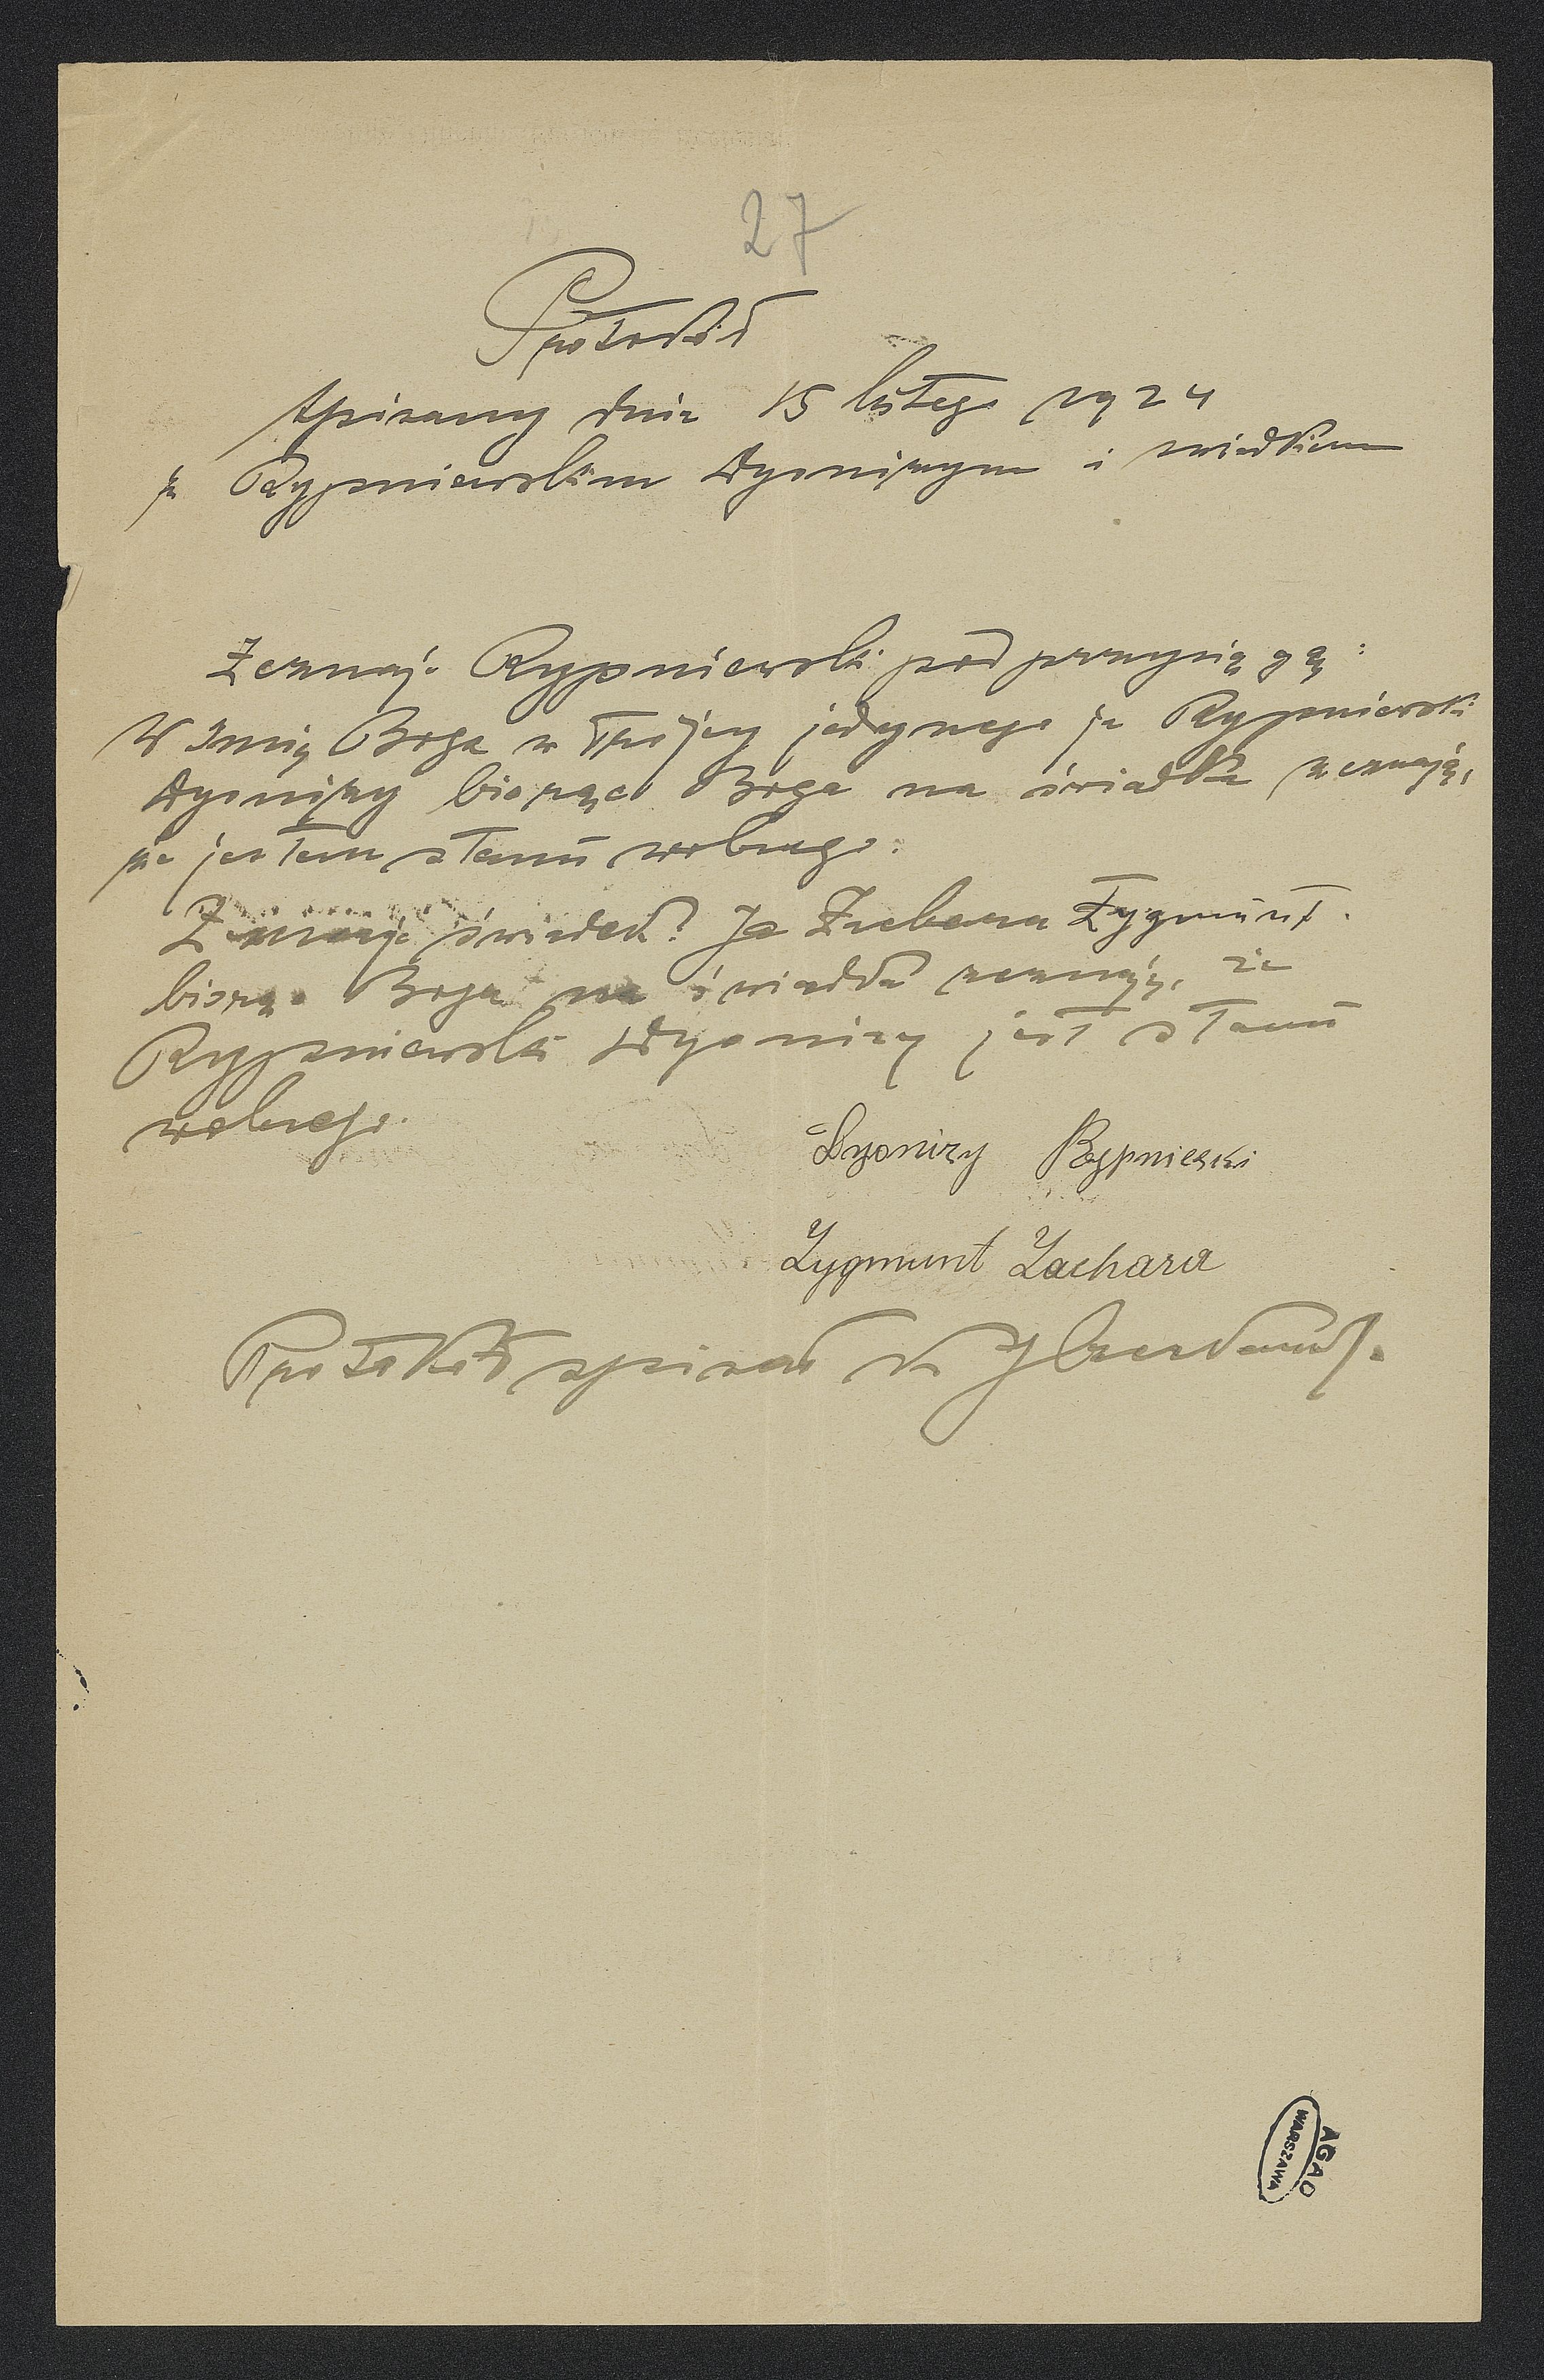 27
Protokół
spisany dnia 15 lutego 1924
z Rypniewskim Dyonizym i świadkiem
Zeznaje Rypniewski pod przysięgą:
W Imię Boga w Trójcy jedynego ja Rypniewski
Dyonizy biorąc Boga na świadka zeznaję,
że jestem stanu wolnego.
Zeznaje świadek: Ja Zachara Zygmunt
biorąc Boga na świadka zeznaję, że
Rypniewski Dyonizy jest stanu
wolnego.
Dyonizy Rypnieski
Zygmunt Zachara
Protokół spisał Ks
AGAD
WARSZAWA